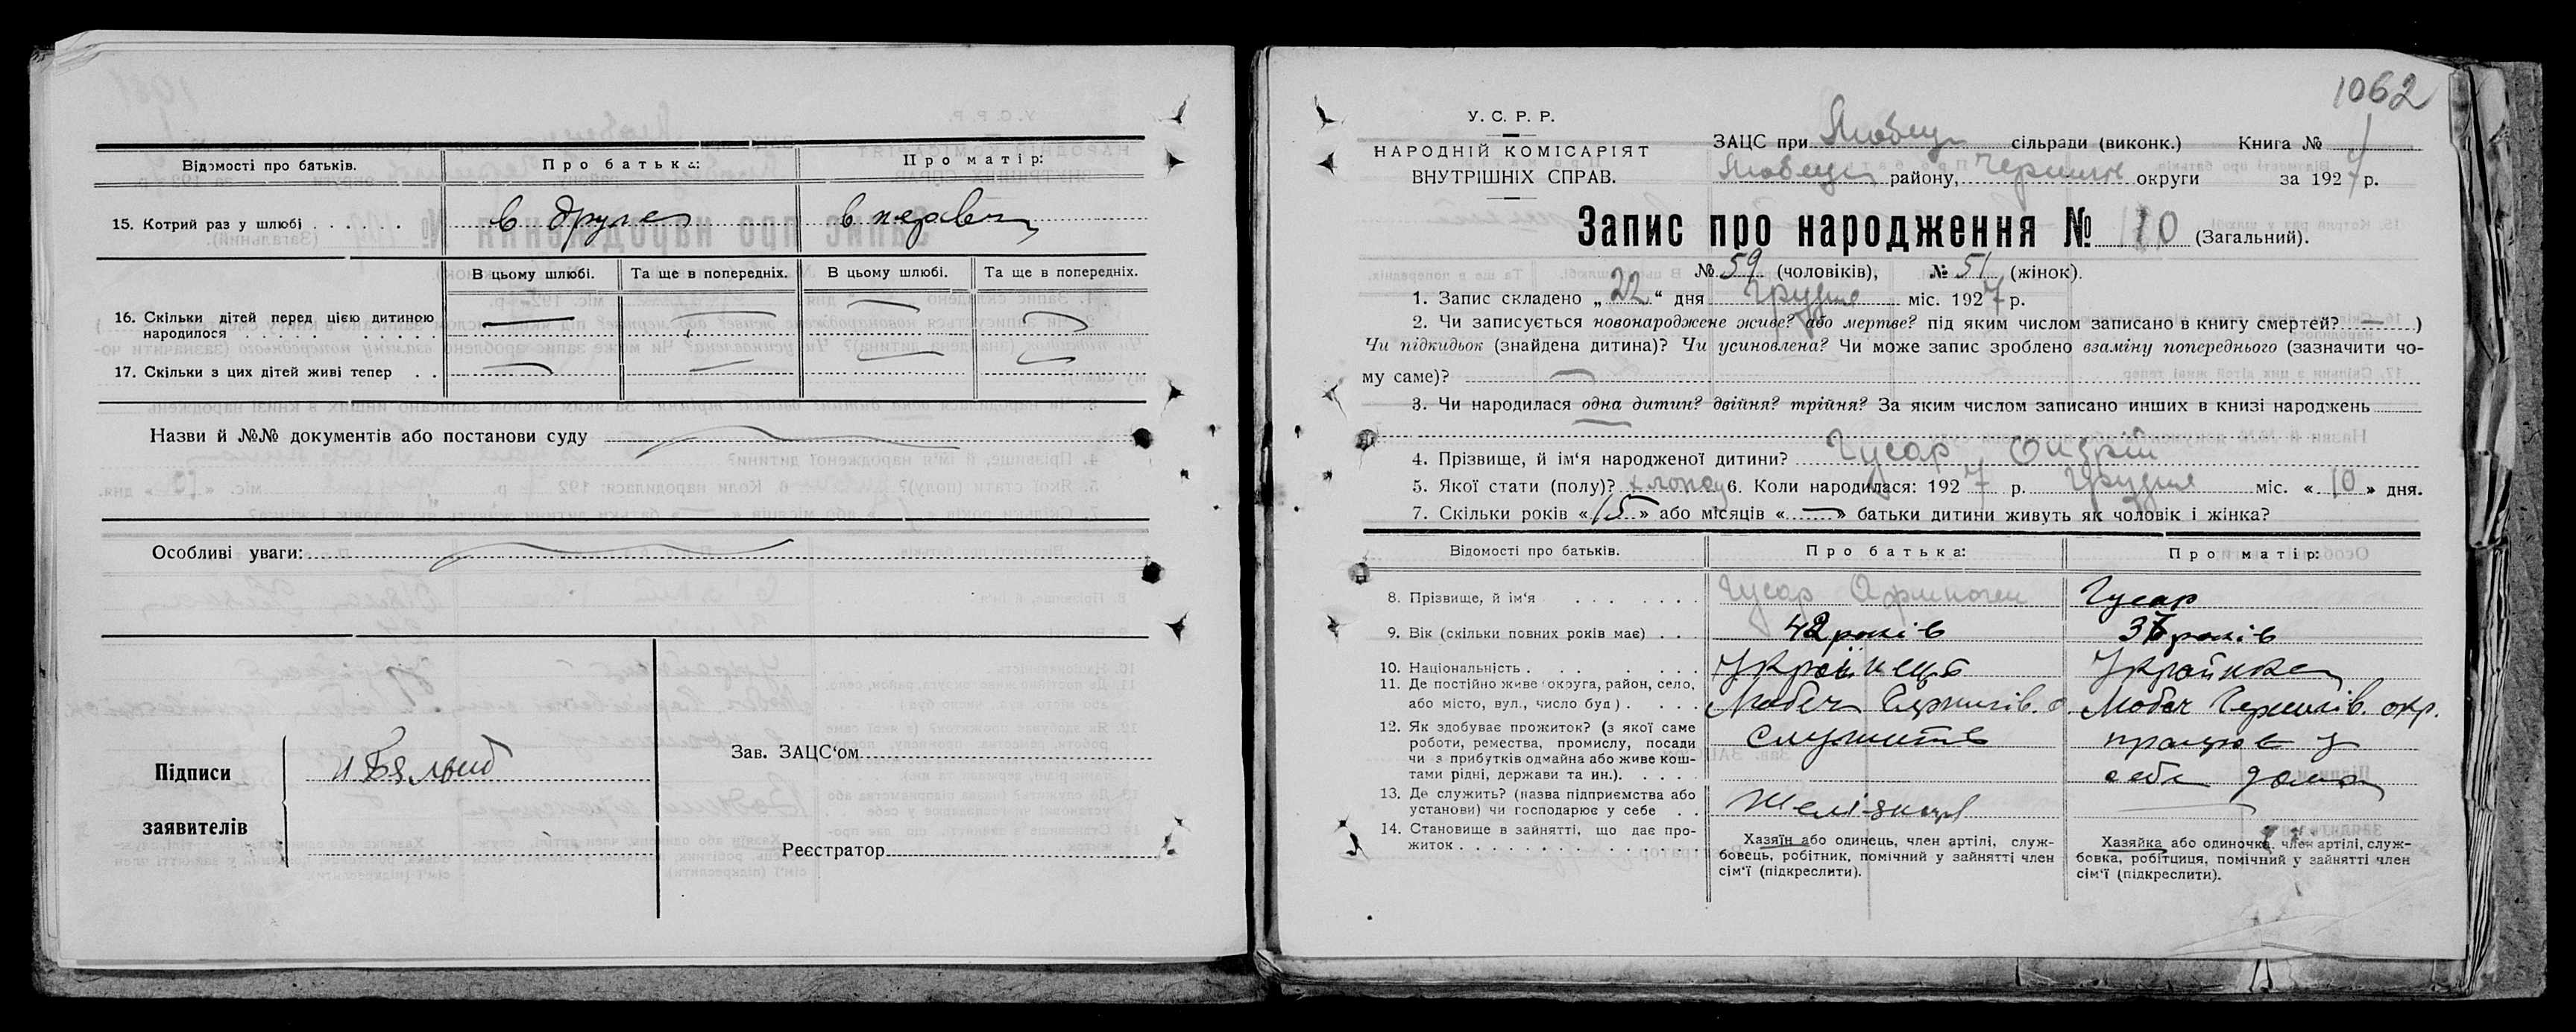 Відомості про батьків. Про батька: Про матір:
15. Котрий раз у шлюбі в друге в перве
В цьому шлюбі. Та ще в попередніх. В цьому шлюбі. Та ще в попередніх.
16. Скільки дітей перед цією дитиною
народилося
17. Скільки з цих дітей живі тепер
Назви й №№ документів або постанови суду
Особливі уваги:
Підписи
заявителів
Зав. ЗАЦС'ом
Реєстратор
1062
У. С. Р. Р.
НАРОДНІЙ КОМІСАРІЯТ
ВНУТРІШНІХ СПРАВ.
ЗАЦС при Любец сільради (виконк.) Книга №
Любец району, Черниг округи за 1927 р.
Запис про народження № 110 (Загальний).
№ 59 (чоловіків), № 51 (жінок).
1. Запис складено „22“ дня Грудня міс. 1927 р.
2. Чи записується новонароджене живе? або мертве? під яким числом записано в книгу смертей? )
Чи підкидьок (знайдена дитина)? Чи усиновлена? Чи може запис зроблено взаміну попереднього (зазначити чо-
му саме)?
3. Чи народилася одна дитин? двійня? трійня? За яким числом записано инших в книзі народжень
4. Прізвище, й ім'я народженої дитини? Гусар Андрій
5. Якої стати (полу)? хлопец 6. Коли народилася: 1927 р. Грудня міс. «10» дня.
7. Скільки років «15» або місяців « — » батьки дитини живуть як чоловік і жінка?
Відомості про батьків. Про батька: Про матір:
8. Прізвище, й ім'я Гусар Гусар
9. Вік (скільки повних років має) 42 років 36 років
10. Національність Українець Українка
11. Де постійно живе округа, район, село,
або місто, вул., число буд) Любеч Чернигів. о. Любеч Чернигів. окр.
12. Як здобуває прожиток? (з якої саме
роботи, ремества, промислу, посади
чи з прибутків одмайна або живе кош-
тами рідні, держави та ин.). служить працює у
себе дома
13. Де служить? (назва підприємства або
установи) чи господарює у себе
14. Становище в зайнятті, що дає про-
житок
Хазяїн або одинець, член артілі, служ-
бовець, робітник, помічний у зайнятті член
сім'ї (підкреслити).
Хазяйка або одиночка, член артілі, служ-
бовка, робітциця, помічний у зайнятті член
сім'ї (підкреслити).